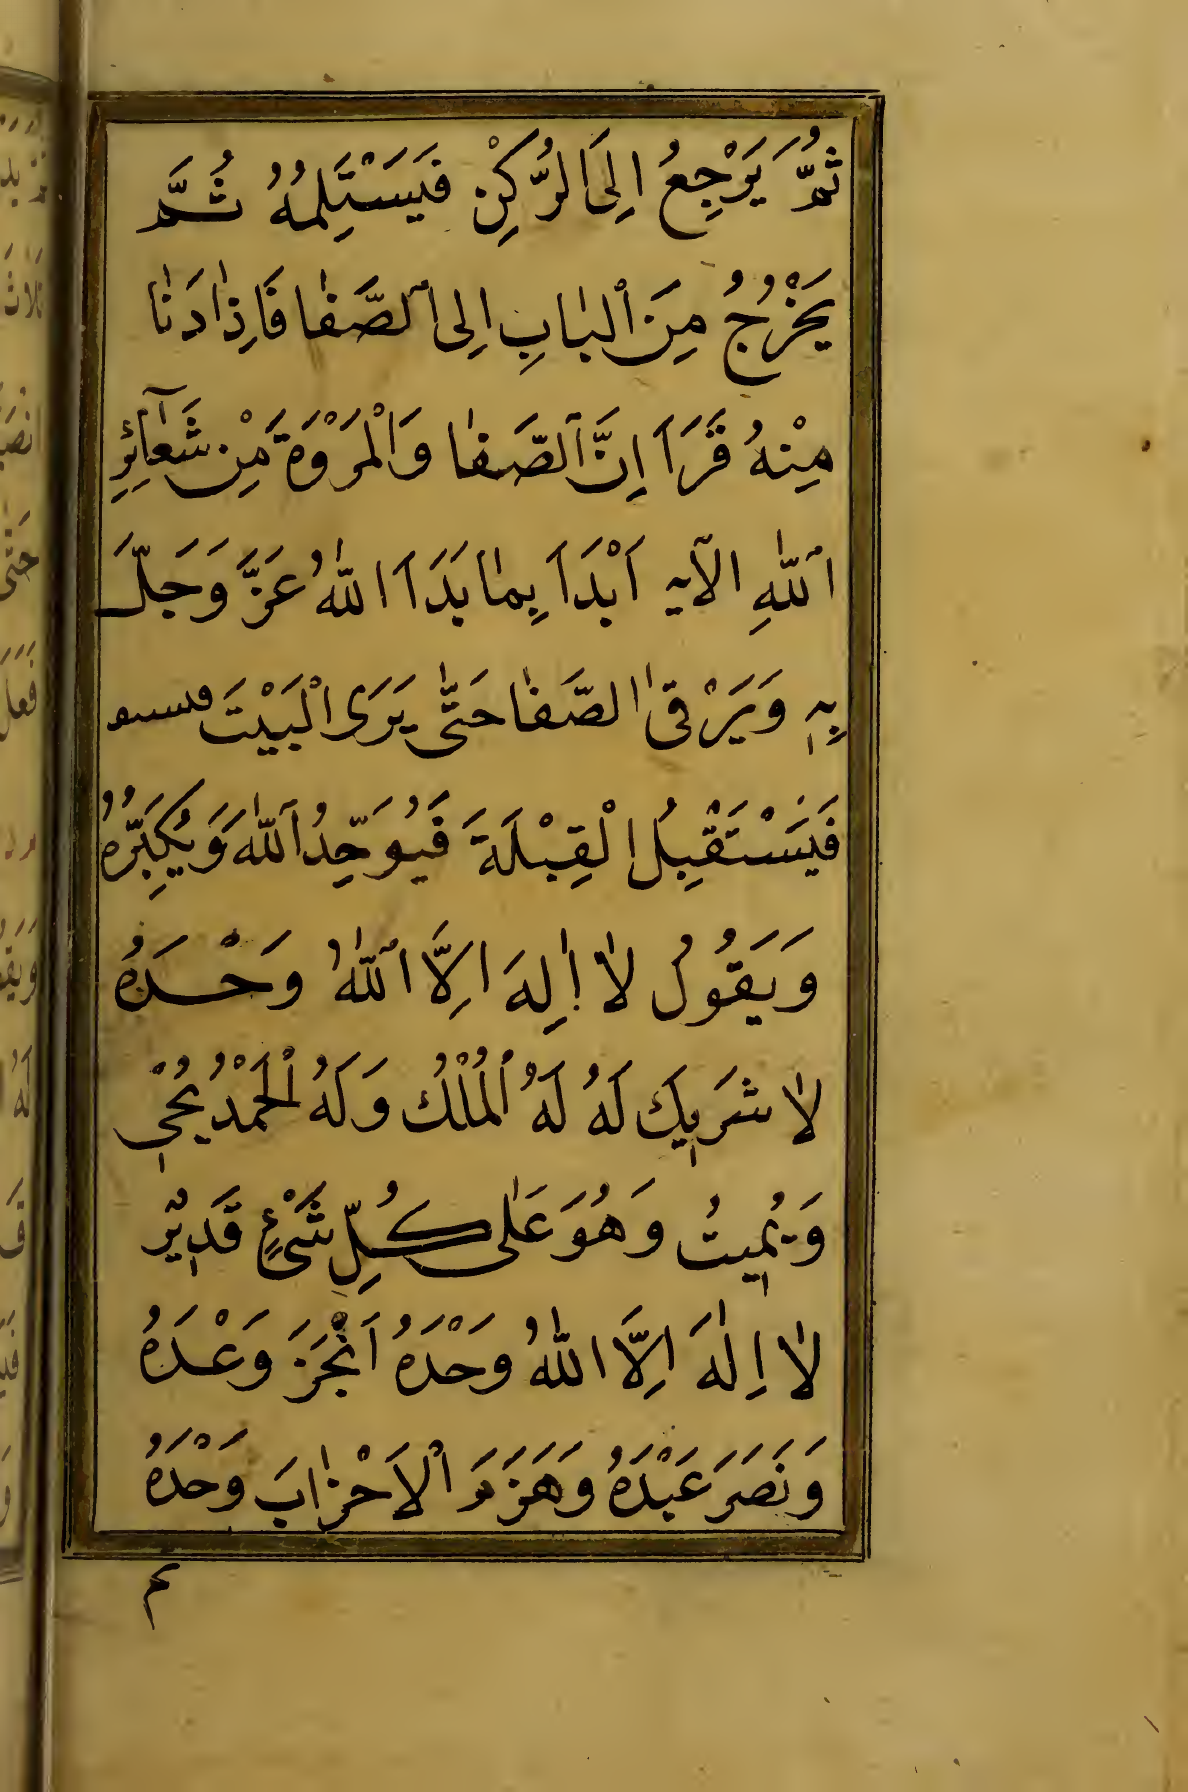 ثُمَّ يَرْجِعُ اِلَى الرُّكْنِ فَيَسْتَلِمُهُ ثُمَّ
يَخْرُجُ مِنَ الْبَابِ اِلَى الصَّفَا فَاِذَا دَنَا
مِنْهُ قَرَاَ اِنَّ الصَّفَا وَالْمَرْوَةَ مِنْ شَعَآئِرِ
اللّٰهِ الآيه اَبْدَاُ بِمَا بَدَاَ اللّٰهُ عَزَّ وَجَلَّ
بِهٖ وَيَرْقَى الصَّفَا حَتّٰى يَرَى الْبَيْتَ
فَيَسْتَقْبِلُ الْقِبْلَةَ فَيُوَحِّدُ اللّٰهَ وَيُكَبِّرُهُ
وَيَقُولُ لَا اِلٰهَ اِلَّا اللّٰهُ وَحْدَهُ
لَا شَرِيكَ لَهُ لَهُ الْمُلْكُ وَلَهُ الْحَمْدُ يُحْيٖ
وَيُمِيتُ وَهُوَ عَلٰى كُلِّ شَيْءٍ قَدِيرٌ
لَا اِلٰهَ اِلَّا اللّٰهُ وَحْدَهُ اَنْجَزَ وَعْدَهُ
وَنَصَرَ عَبْدَهُ وَهَزَمَ الْاَحْزَابَ وَحْدَهُ